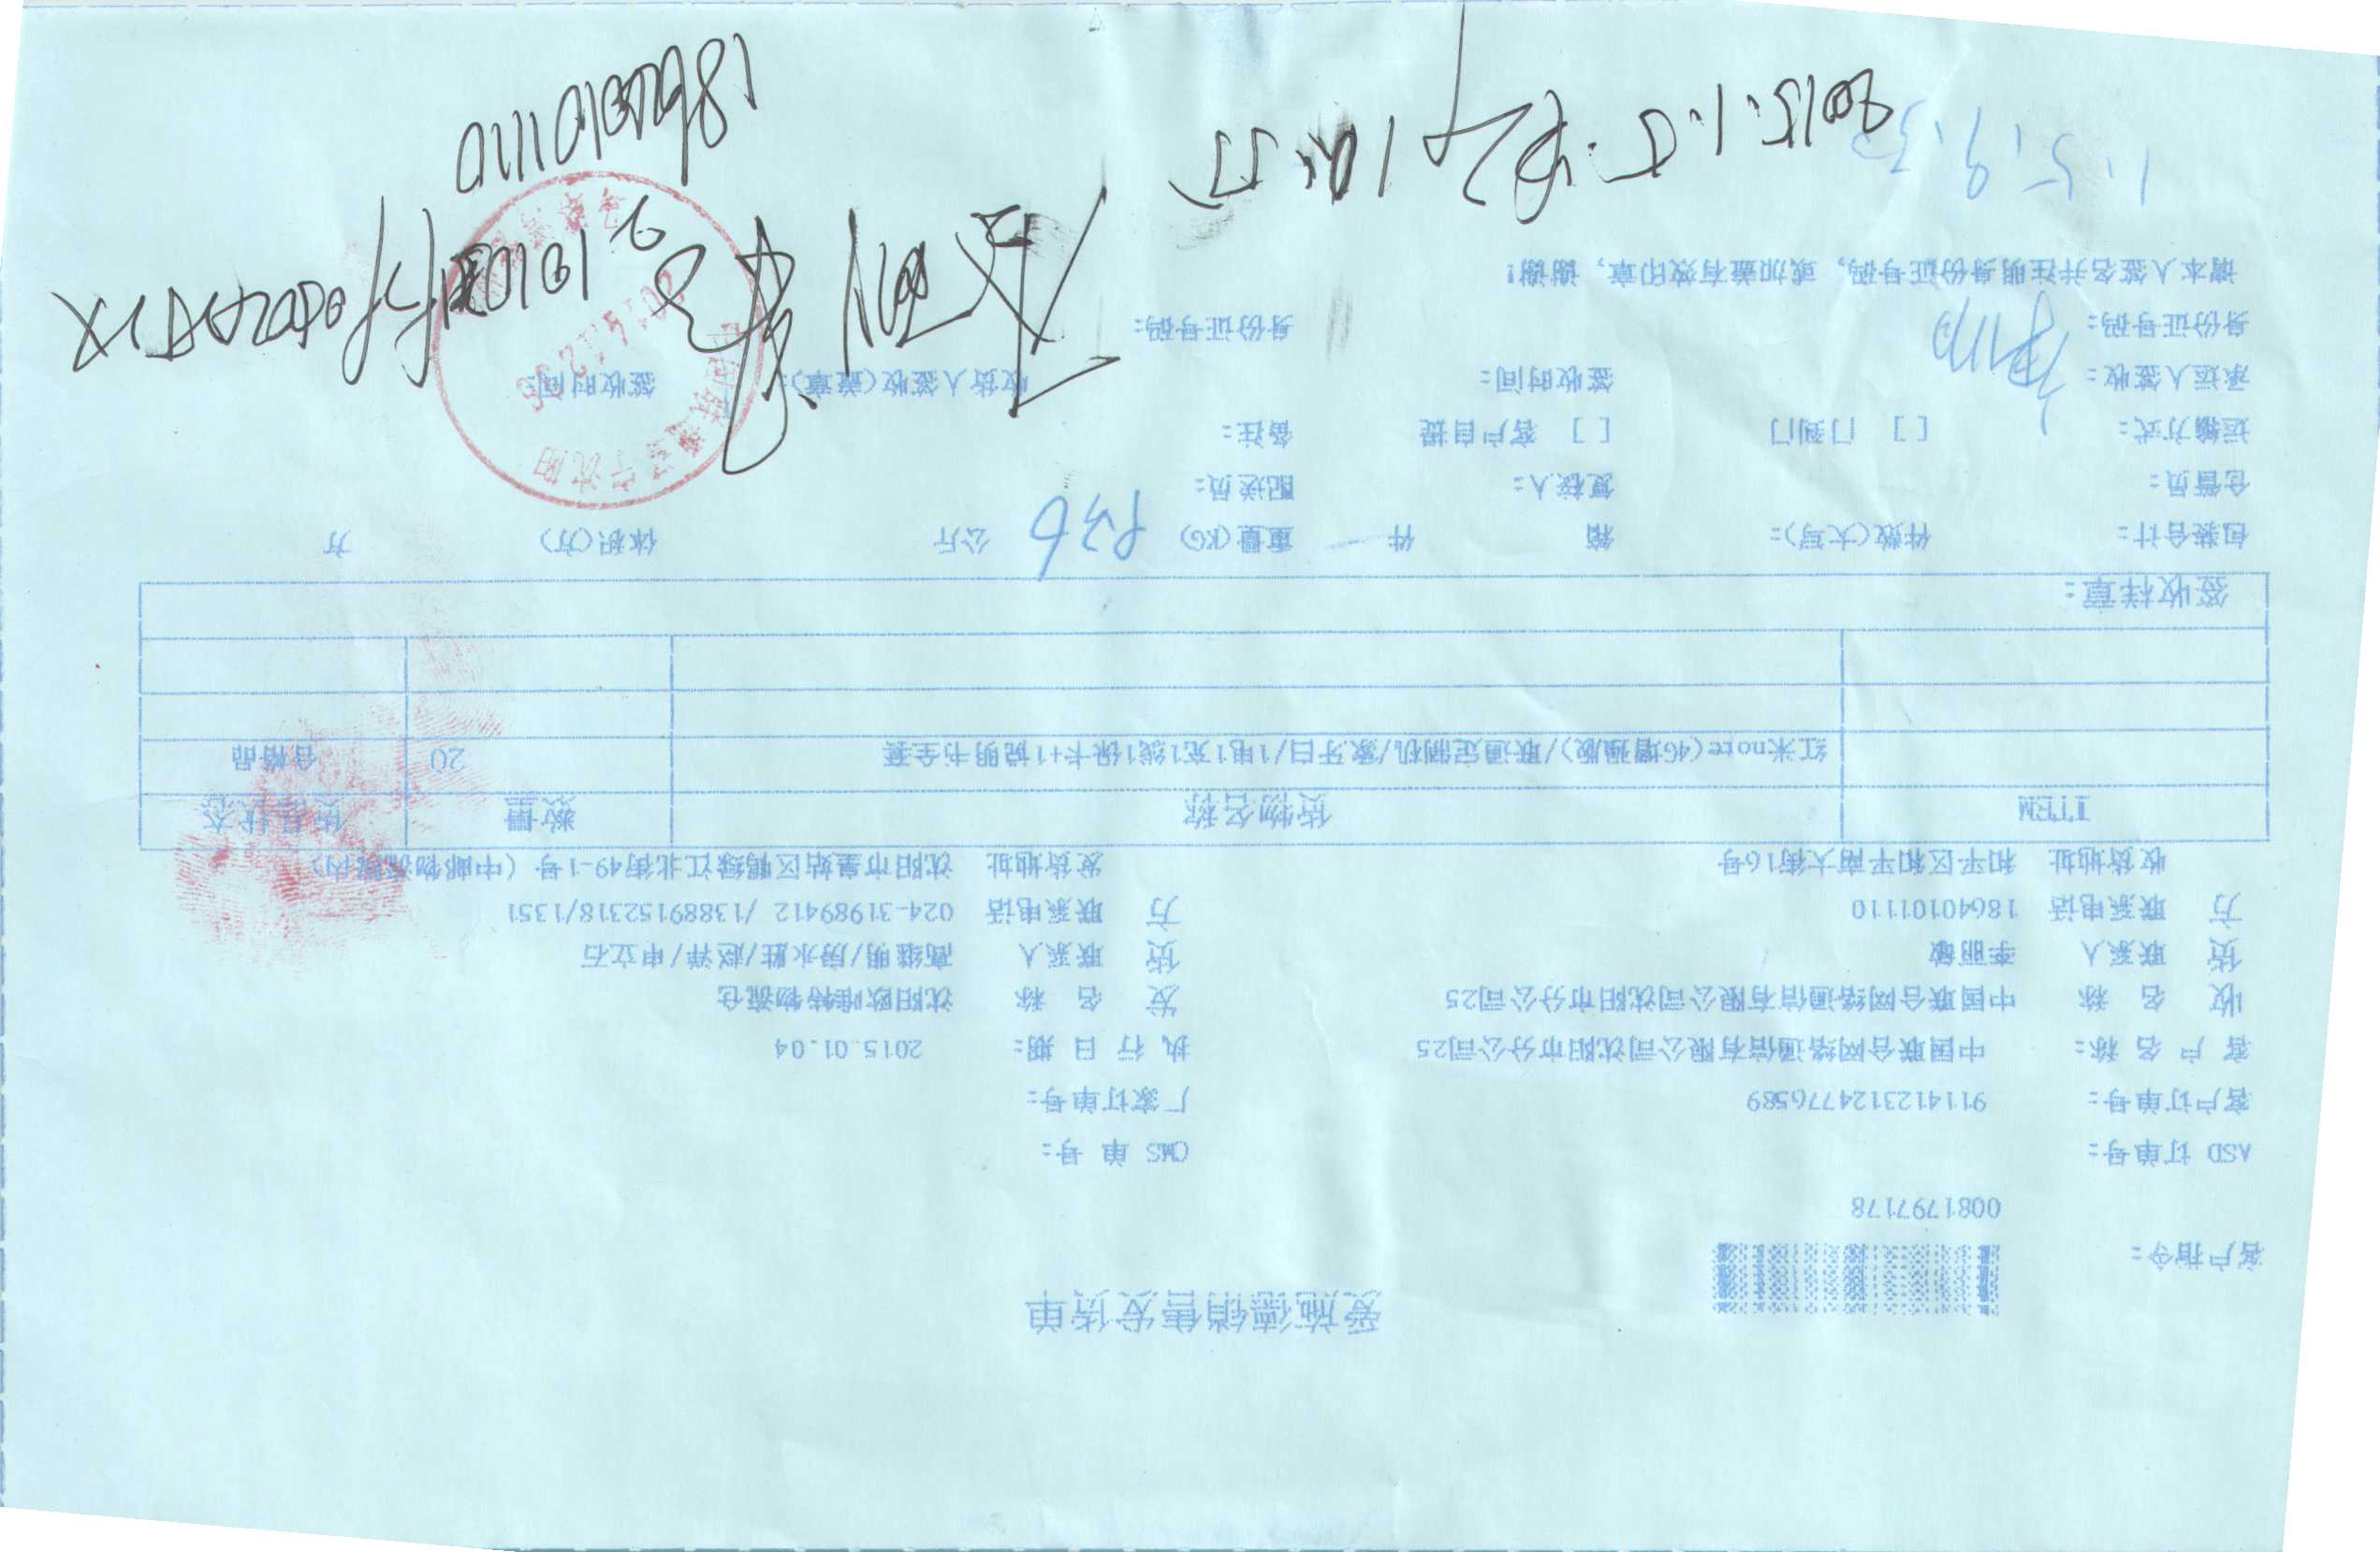 爱施德销售发货单
客户指令:
0081797178
ASD 订单号: CMS 单 号:
客户订单号: 9114123124776589 厂家订单号:
客 户 名 称: 中国联合网络通信有限公司沈阳市分公司25 执 行 日 期: 2015.01.04
收 名 称 中国联合网络通信有限公司沈阳市分公司25 发 名 称 沈阳欧唯特物流仓
货 联系人 李丽敏 货 联系人 高继明/房永胜/赵祥/申立石
方 联系电话 18640101110 方 联系电话 024-31989412 /13889152318/1351
收货地址 和平区和平南大街16号 发货地址 沈阳市皇姑区鸭绿江北街49-1号 (中邮物流院内)
ITEM 货物名称 数量 货品状态
红米note(4G增强版)/联通定制机/象牙白/1电1充1线1保卡+1说明书全套 20 合格品
签收样章:
包装合计: 件数(大写): 箱 件 重量(KG) 公斤 体积(方) 方
仓管员: 复核人: 配送员:
运输方式: [ ] 门到门 [ ] 客户自提 备注:
承运人签收: 签收时间: 收货人签收(盖章): 签收时间:
身份证号码: 身份证号码:
请本人签名并注明身份证号码, 或加盖有效印章, 谢谢!
2015.1.5.
18640101110